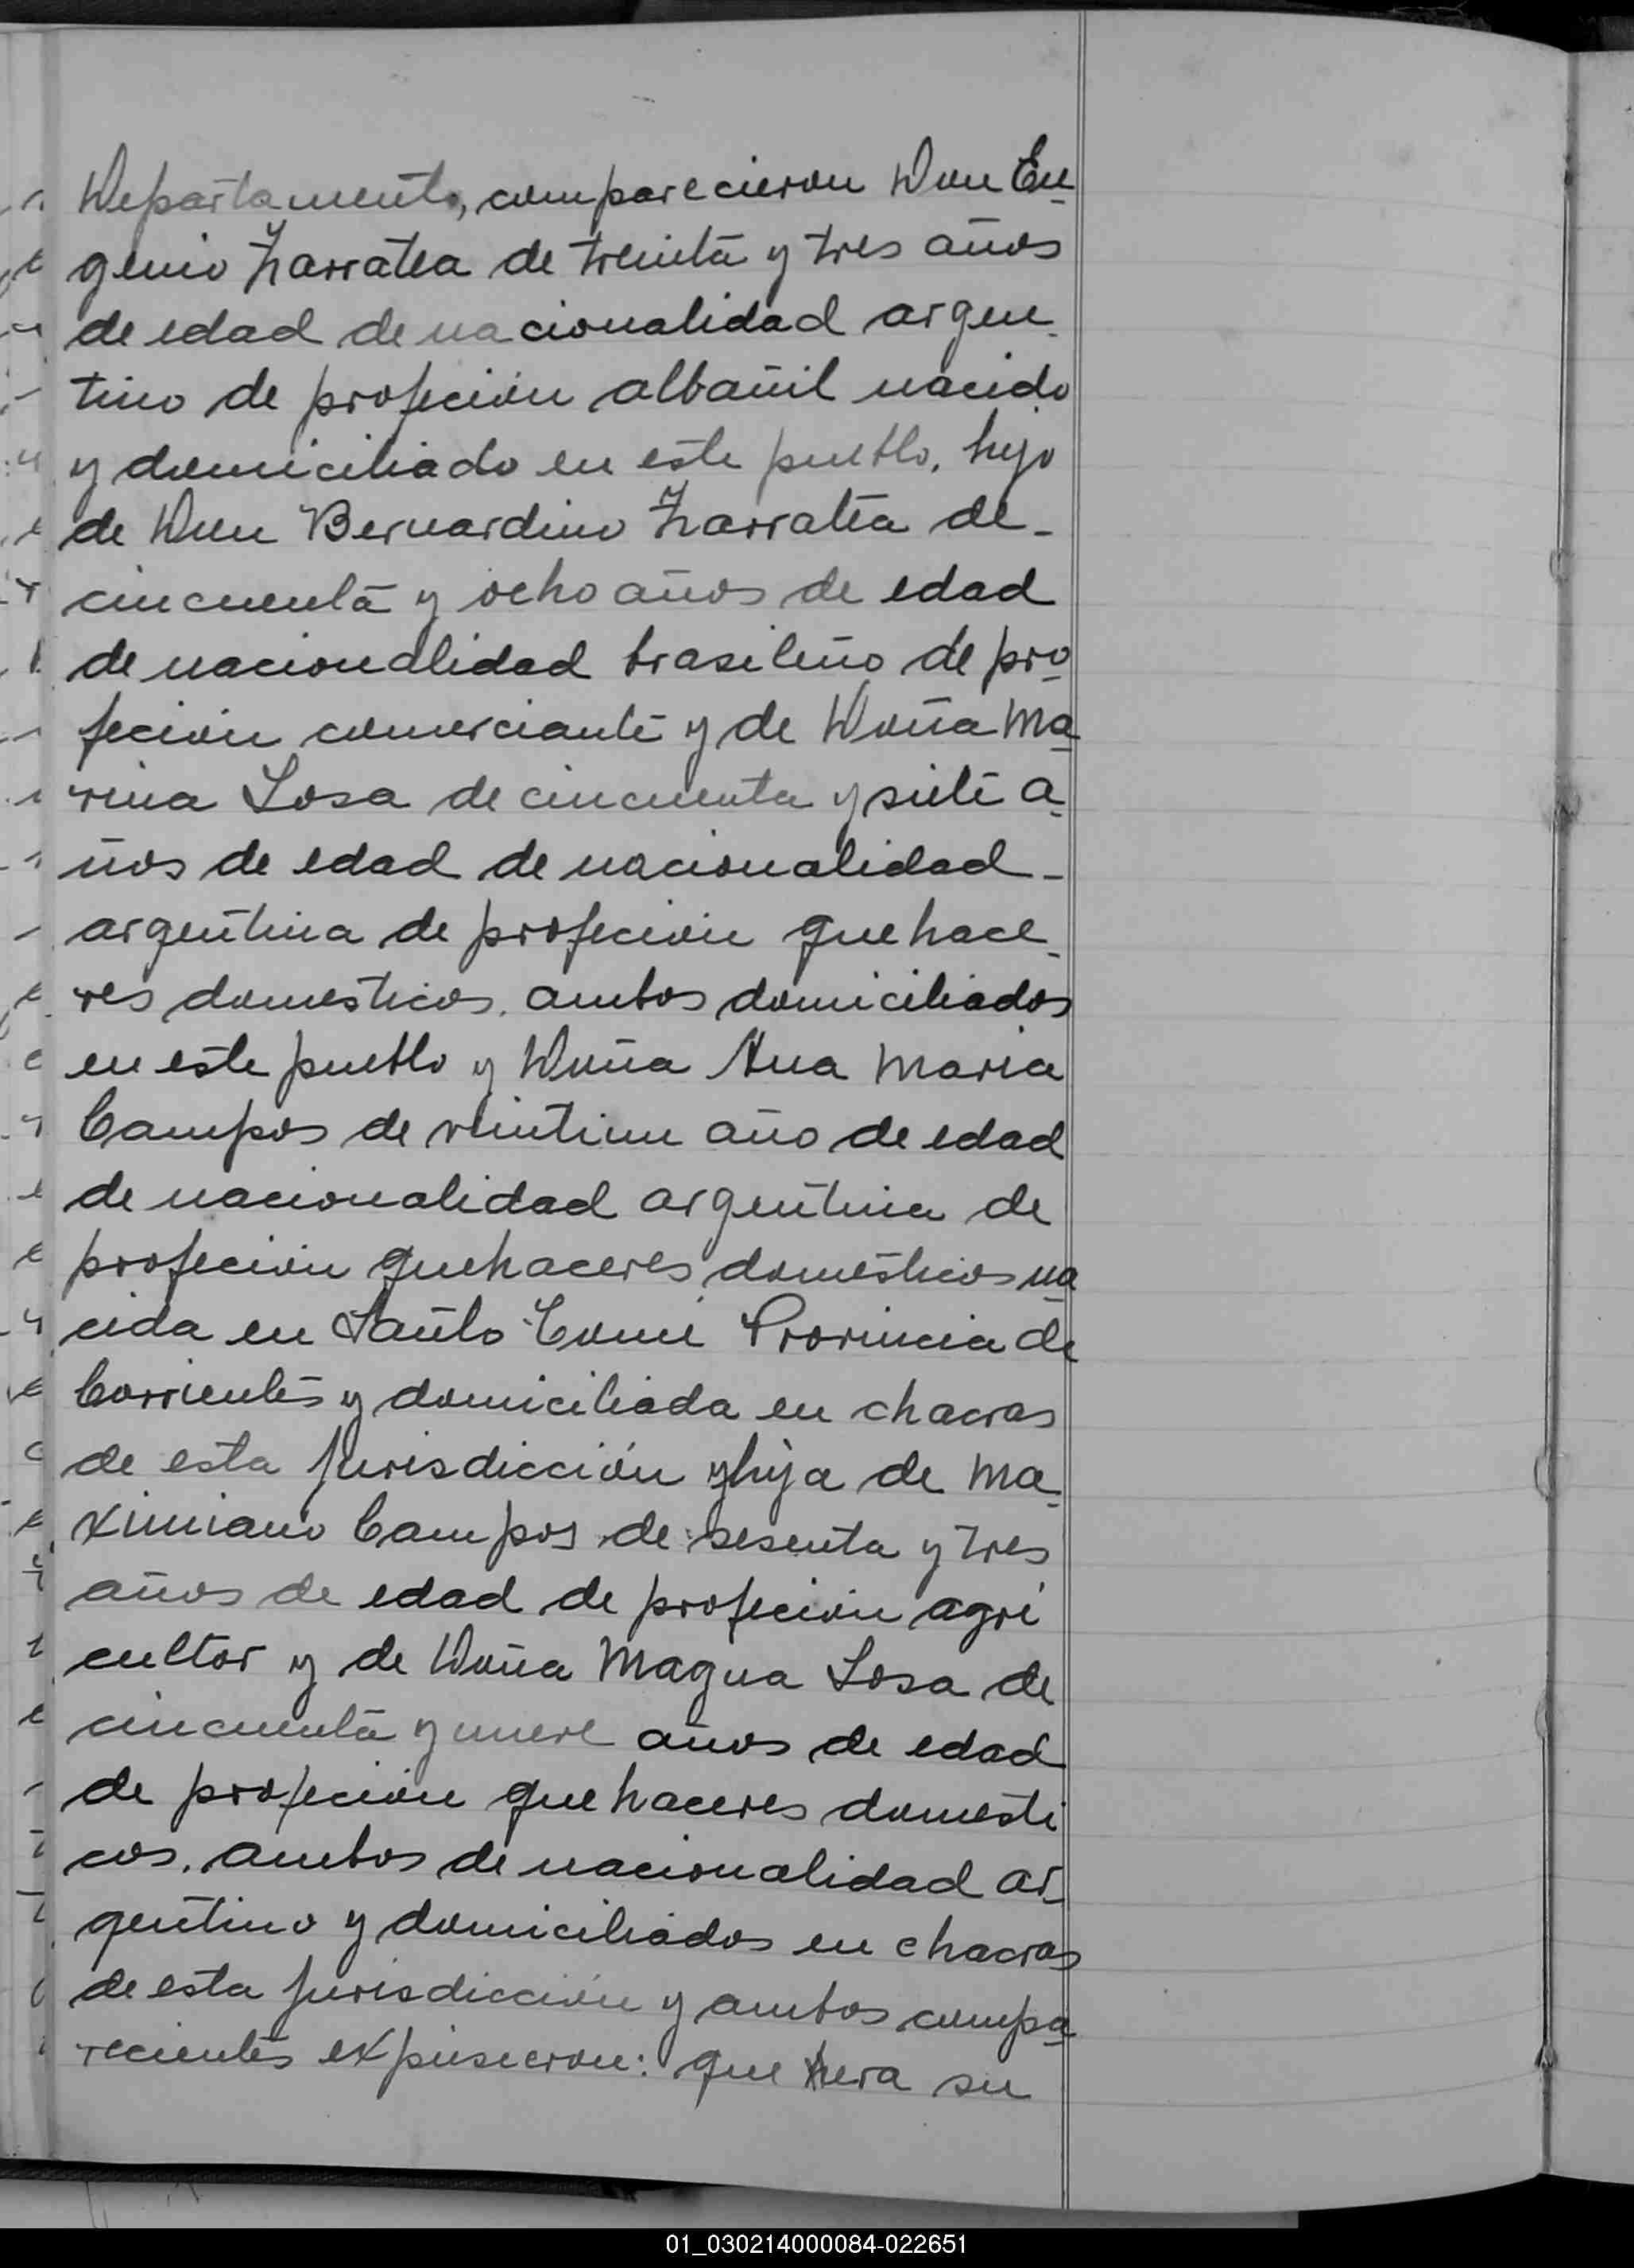 Departamento, comparecieron Don Eu-
genio Zarratea de treinta y tres años
de edad de nacionalidad argen-
tino de profeción albañil nacido
y domiciliado en este pueblo, hijo
de Don Bernardino Zarratea de-
cincuenta y ocho años de edad
de nacionalidad brasileño de pro-
feción comerciante y de Doña Ma-
rina Sosa de cincuenta y siete a-
ños de edad de nacionalidad-
argentina de profeción quehace-
res domesticos. ambos domiciliados
en este pueblo y Doña Ana Maria
Campos de veintiun año de edad
de nacionalidad argentina de
profeción quehaceres domesticos na-
cida en Santo Tomé Provincia de
Corrientes y domiciliada en chacras
de esta Jurisdicción y hija de Ma-
ximiano Campos de sesenta y tres
años de edad de profeción agri
cultor y de Doña Magna Sosa de
cincuenta y nueve años de edad
de profeción quehaceres domesti
cos. ambos de nacionalidad ar-
gentino y domiciliados en chacras
de esta Jurisdicción y ambos compa-
recientes expusieron: que hera su
01_030214000084-022651